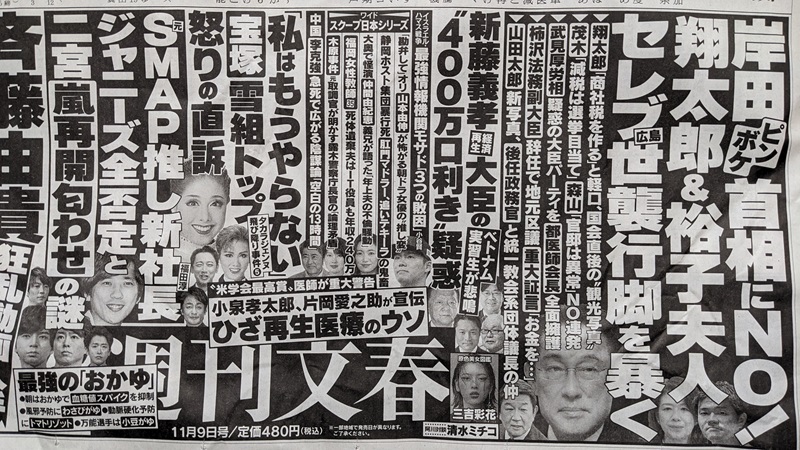 岸田ピンボケ首相にNO!
翔太郎&裕子夫人
セレブ広島世襲行脚を暴く
翔太郎「商社税を作ると軽口、国会直後の“観光写真”
茂木「減税は選挙目当て」森山「官邸は異常」NO連発
武見厚労相 疑惑の大臣パーティを都医師会長が全面擁護
柿沢法務副大臣 辞任で地元区議「重大証言」「お金を…」
山田太郎「新写真」、後任政務官と統一教会系団体議長の仲
新藤義孝経済再生大臣の
“400万口利き”疑惑
ベトナム
実習生が悲鳴
イスラエル・ハマス戦争
最強情報機関モサド「3つの敗因」
ワイド
スクープ日本シリーズ
勘弁してオリ山本由伸が怖がる朝ドラ女優の“推し”
静岡ホスト集団暴行死
大奥で怪演 仲間由紀恵 義弟が語った「年上夫の不倫騒動」
福岡女性教師
木原事件
中国 李克強「急死」で広がる陰謀論「空白の13時間」
「私はもうやらない」
宝塚 雪組トップ
怒りの直訴
タカラジェンヌ
飛び降り事件
元SMAP推し新社長
福田淳
ジャニーズ全否定と
二宮 嵐再開匂わせの謎
斉藤由貴
狂乱動画
“米学会最高賞”医師が重大警告
小泉孝太郎、片岡愛之助が宣伝
ひざ再生医療のウソ
週刊文春
11月9日号/定価480円(税込)
※一部地域で発売日が異なります。
ご了承ください。
最強の「おかゆ」
●朝はおかゆで血糖値スパイクを抑制
●風邪予防にわさびがゆ●動脈硬化予防
にトマトリゾット●万能選手は小豆がゆ
原色美女図鑑
三吉彩花
阿川対談
清水ミチコ